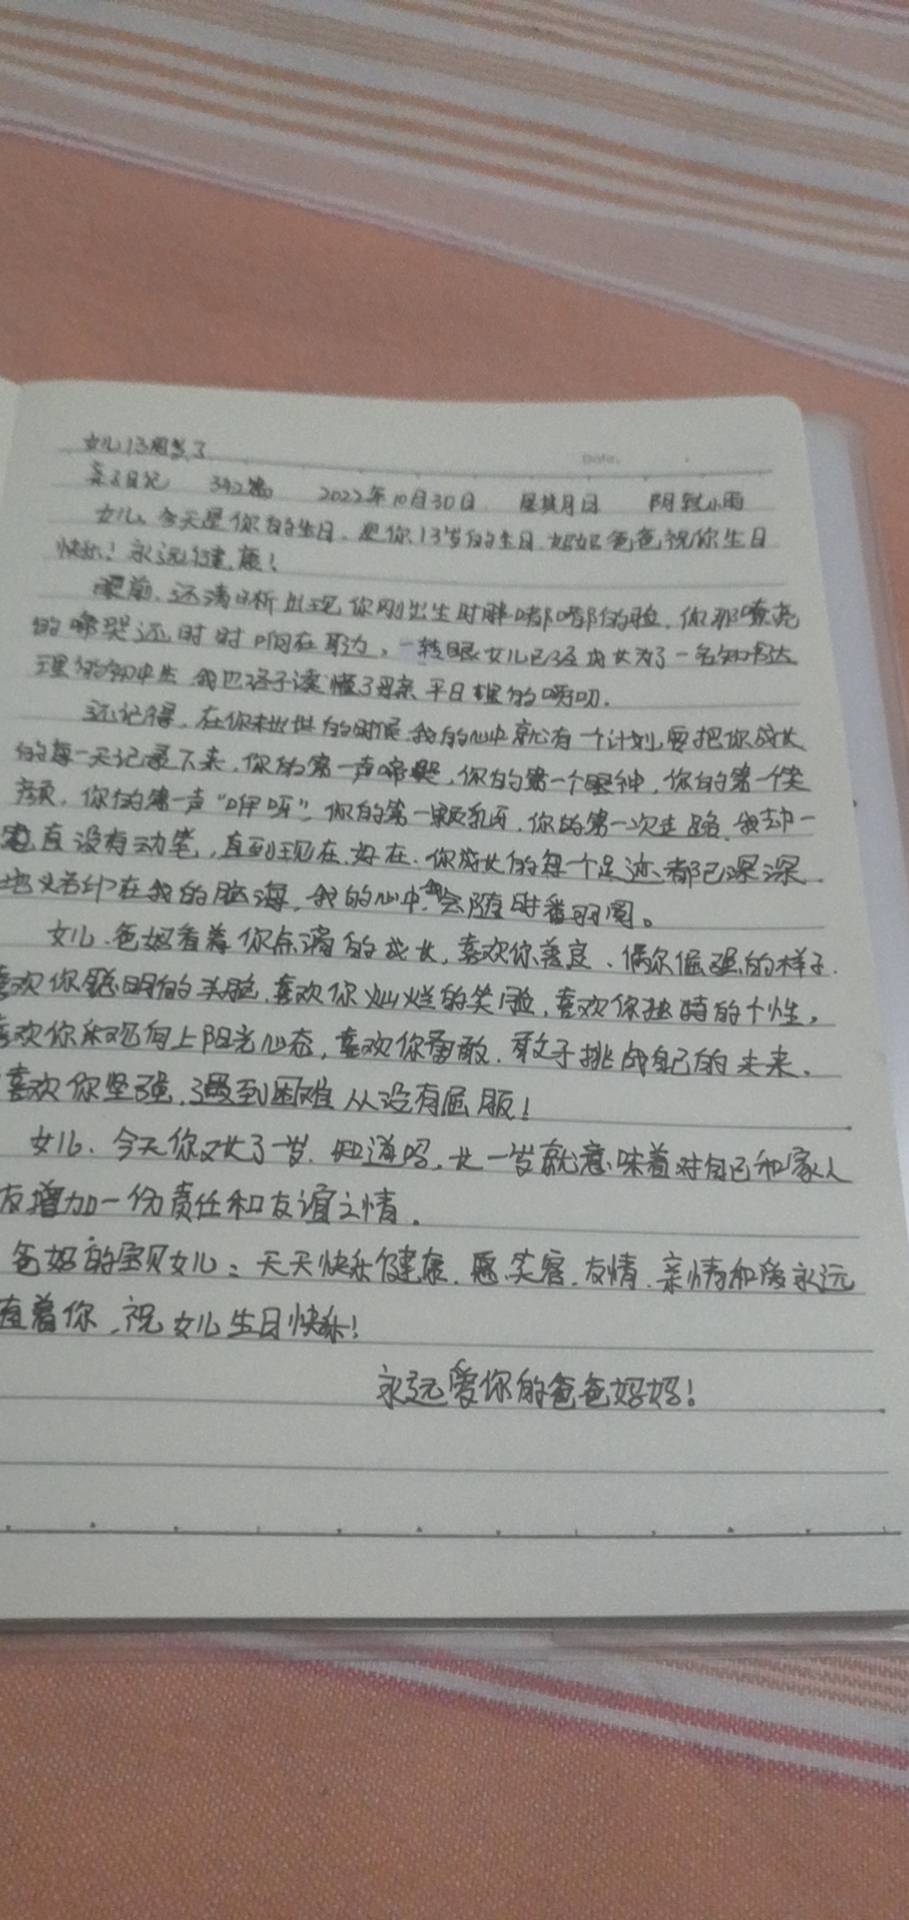 女儿13周岁了
Date.
亲子日记 342篇 2022年10月30日 星期日 阴转小雨
女儿、今天是你的生日，是你13岁的生日、妈妈爸爸祝你生日
快乐！永远健康！
眼前，还清晰出现你刚出生时胖嘟嘟的脸，你那嘹亮
的啼哭还时时响在耳边，一转眼女儿已经成长为了一名知书达
理的初中生，我也终于读懂了母亲平日里的唠叨．
还记得，在你未出世的时候，我的心中就有一个计划，要把你成长
的每一天记录下来，你的第一声啼哭，你的第一个眼神，你的第一个笑
颜，你的第一声“咿呀”，你的第一颗乳牙，你的第一次走路，我却一
直没有动笔，直到现在，好在，你成长的每个足迹都已深深
地烙印在我的脑海，我的心中，我会随时翻阅。
女儿、爸妈看着你点滴的成长，喜欢你善良、偶尔倔强的样子．
喜欢你聪明的头脑，喜欢你灿烂的笑脸，喜欢你独特的个性，
喜欢你乐观向上阳光心态，喜欢你勇敢，敢于挑战自己的未来，
喜欢你坚强，遇到困难从没有屈服！
女儿、今天你又长了一岁，知道吗，长一岁就意味着对自己和家人
友增加一份责任和友谊之情．
爸妈的宝贝女儿：天天快乐健康，愿笑容，友情，亲情和爱永远
着你，祝女儿生日快乐！
永远爱你的爸爸妈妈！